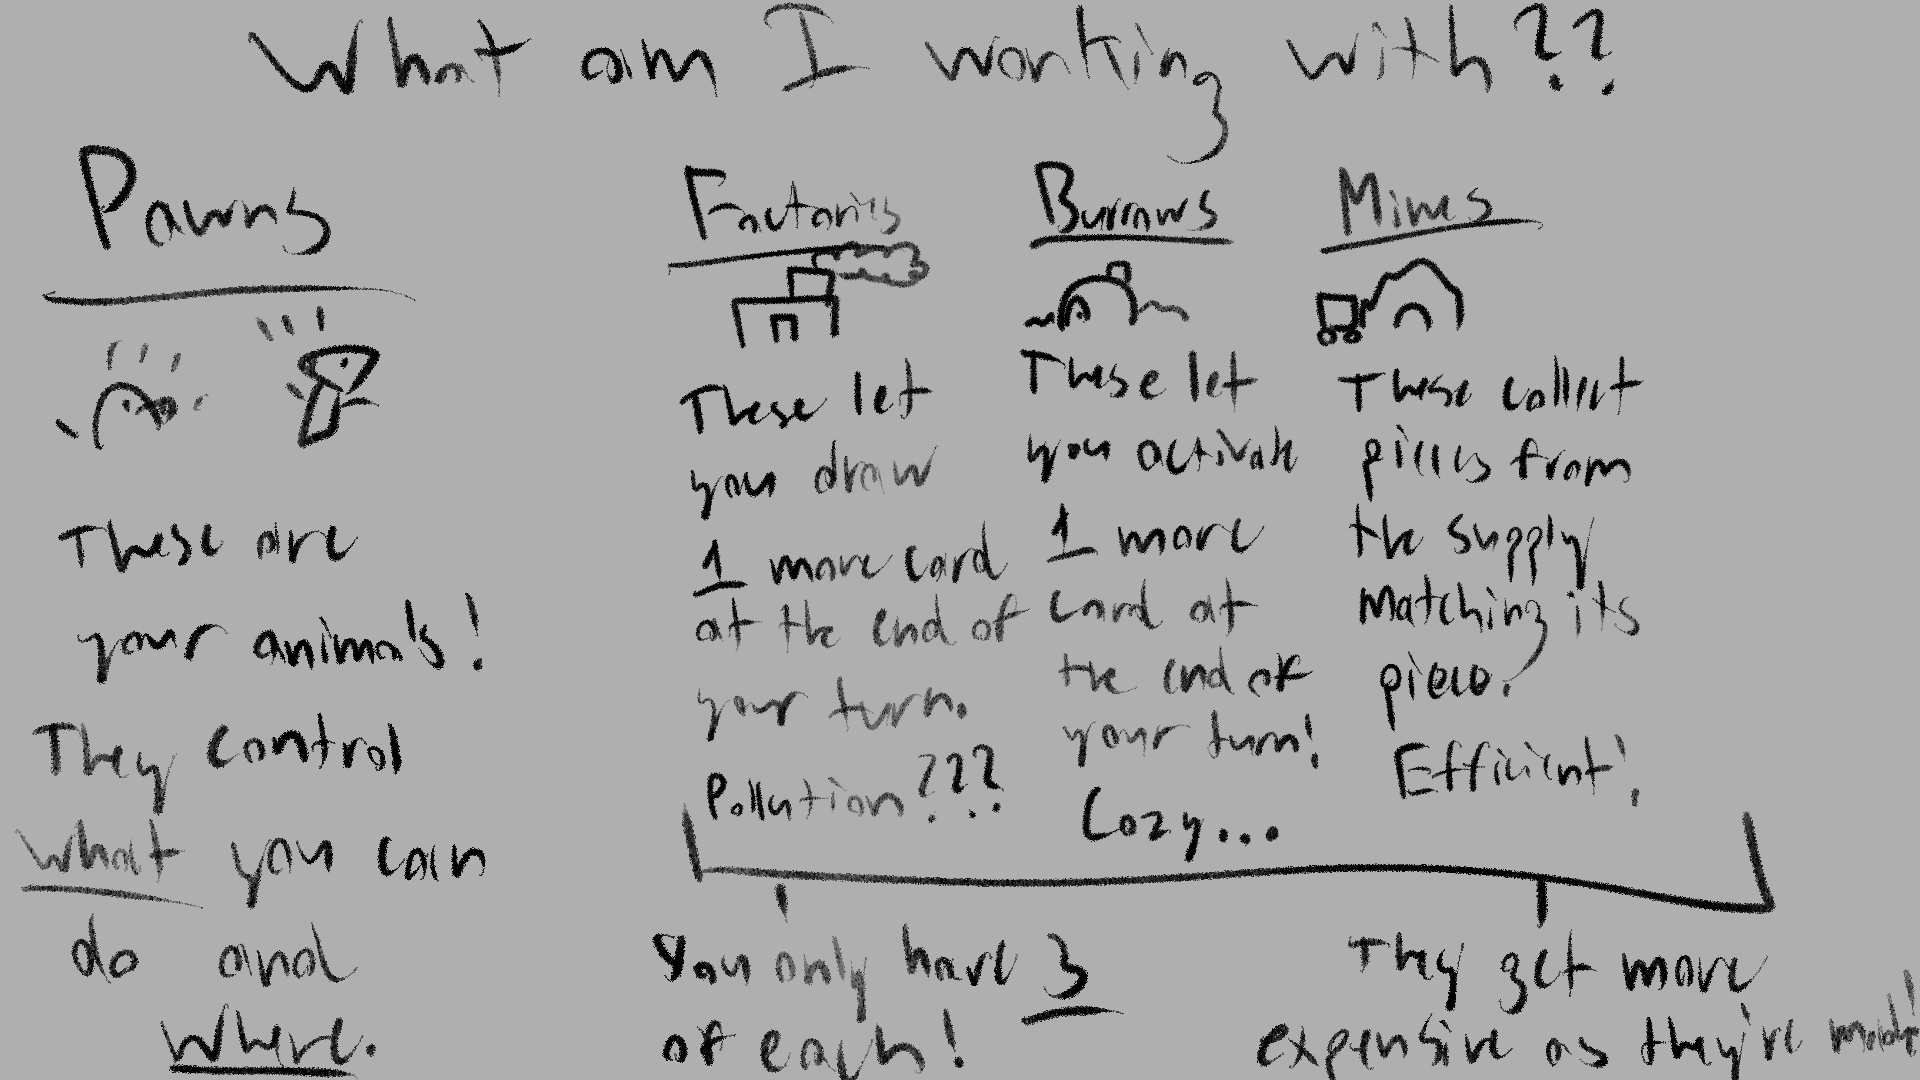 What am I working with??
Pawns
These are
your animals!
They control
what you can
do and
where.
Factories
These let
you draw
1 more card
at the end of
your turn.
Pollution???
Burrows
These let
you activate
1 more
card at
the end of
your turn!
Cozy...
Mines
These collect
pieces from
the supply
matching its
piece.
Efficient!
You only have 3
of each!
They get more
expensive as they're made!